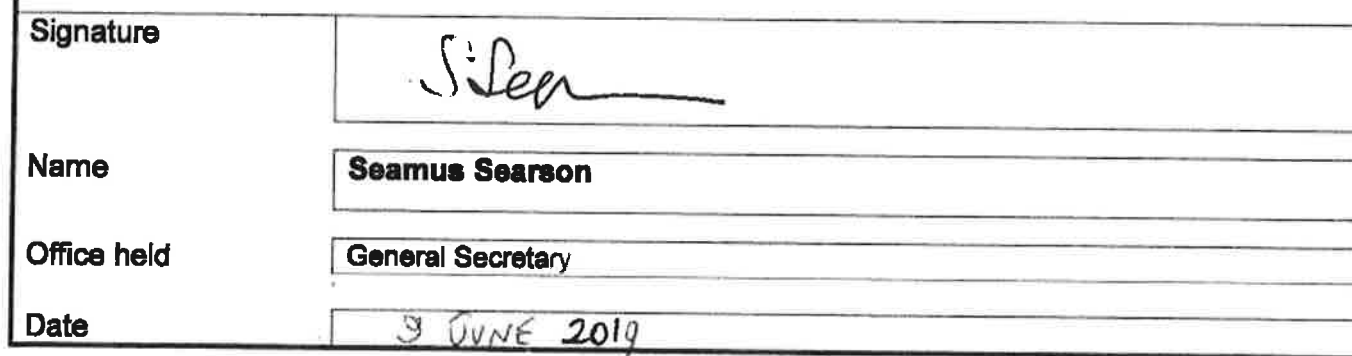 Signature
S. Sear
Name
Seamus Searson
Office held
General Secretary
Date
9 JUNE 2019